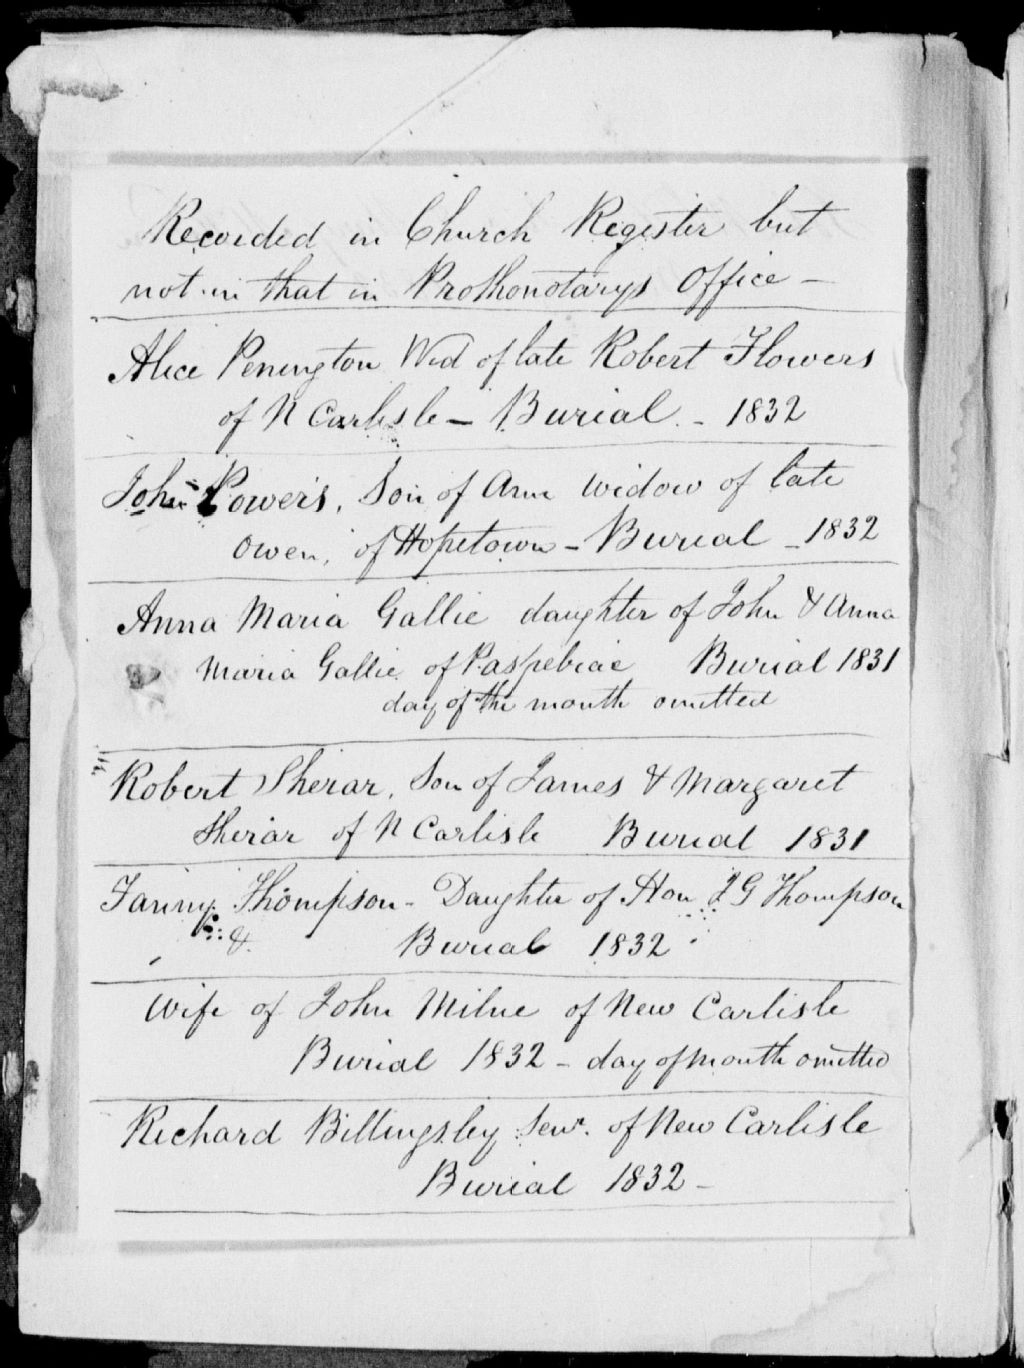 Recorded in Church Register but
not in that in Prothonotarys Office —
Alice Penington Wid of late Robert Flowers
of N Carlisle — Burial - 1832
John Powers, Son of Ann Widow of late
Owen, of Hopetown - Burial - 1832
Anna Maria Gallie daughter of John & Anna
Maria Gallie of Paspebiac Burial 1831
day of the month omitted
Robert Sherar, Son of James & Margaret
Sherar of N Carlisle Burial 1831
Fanny Thompson - Daughter of Hon J G Thompson
&. Burial 1832
Wife of John Milne of New Carlisle
Burial 1832 - day of month omitted
Richard Billingsley Senr. of New Carlisle
Burial 1832 -